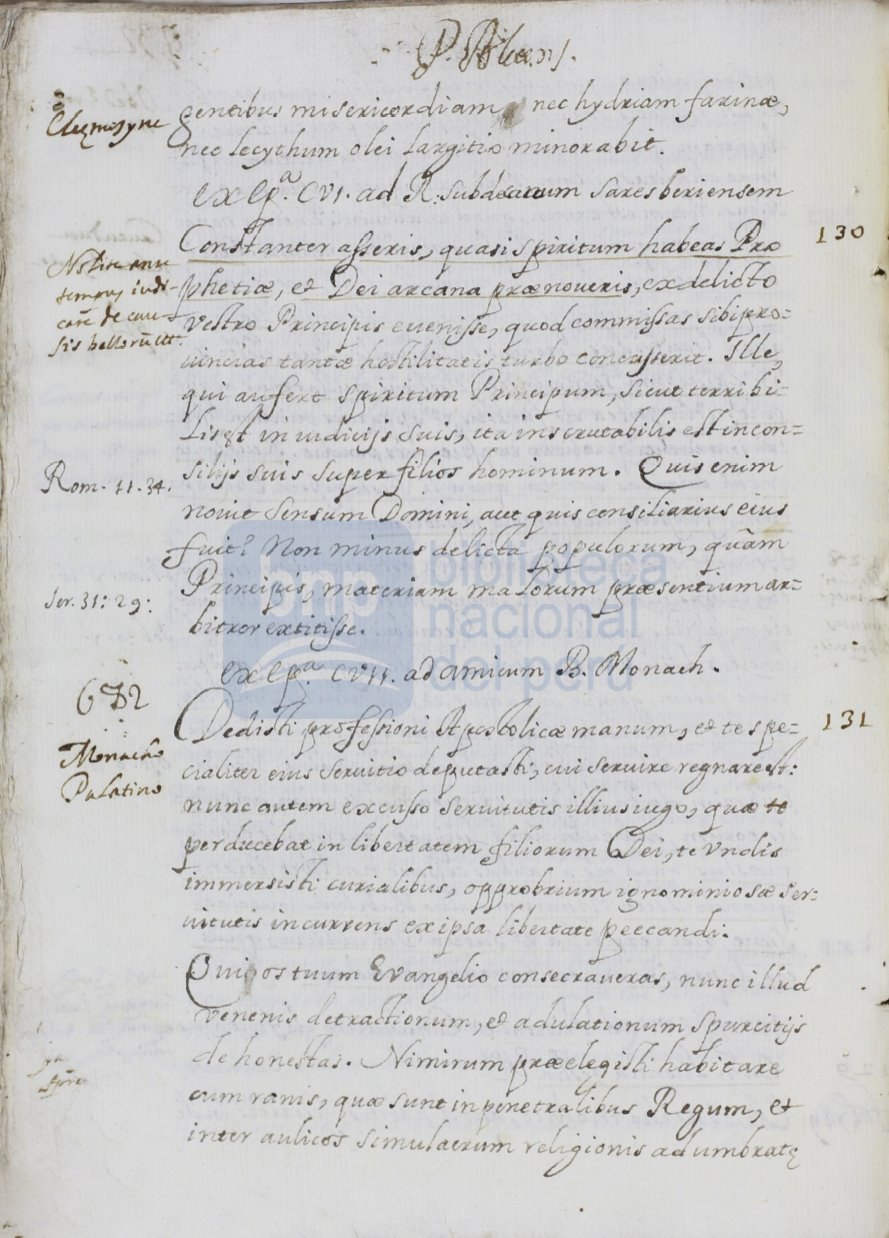 P. Blesens.
Eleemosyne
gentibus misericordiam, nec hydriam farinæ,
nec lecythum olei largitio minorabit.
ex ep.ª CVI. ad R. subdecanum saresberiensem
130
Constanter asseris, quasi spiritum habeas Pro
phetiæ, et Dei arcana prænoveris, ex delicto
Vestro Principis evenisse, quod commissas sibi pro-
vincias tantæ hostilitatis turbo concusserit. Ille,
qui aufert spiritum Principum, sicut terribi-
lis est in iudicijs suis, ita inscrutabilis est in con=
silijs suis super filios hominum. Quis enim
novit sensum Domini, aut quis consiliarius eius
fuit? Non minus delicta populorum, quàm
Principis, materiam malorum præsentium ar=
bitror extitisse.
Nolite ante
tempus iudi-
care de cau-
sis bellorũ
Rom. 11. 34.
Jer. 31: 29:
ex ep.ª CVII. ad amicum B. Monach.
131
632
Monacho
Palatino
Dedisti professioni Apostolicæ manum, et te spe-
cialiter eius servitio deputasti, cui servire regnare est:
nunc autem excusso servitutis illius iugo, quæ te
perducebat in libertatem filiorum Dei, te vndis
immersisti curialibus, opprobrium ignominiosæ ser-
vitutis incurrens ex ipsa libertate peccandi.
Qui os tuum Evangelio consecraveras, nunc illud
venenis detractionum, et adulationum spurcitijs
dehonestas. Nimirum præelegisti habitare
cum ranis, quæ sunt in penetralibus Regum, et
inter aulicos simulacrum religionis adumbratę
bnp biblioteca
nacional
del perú